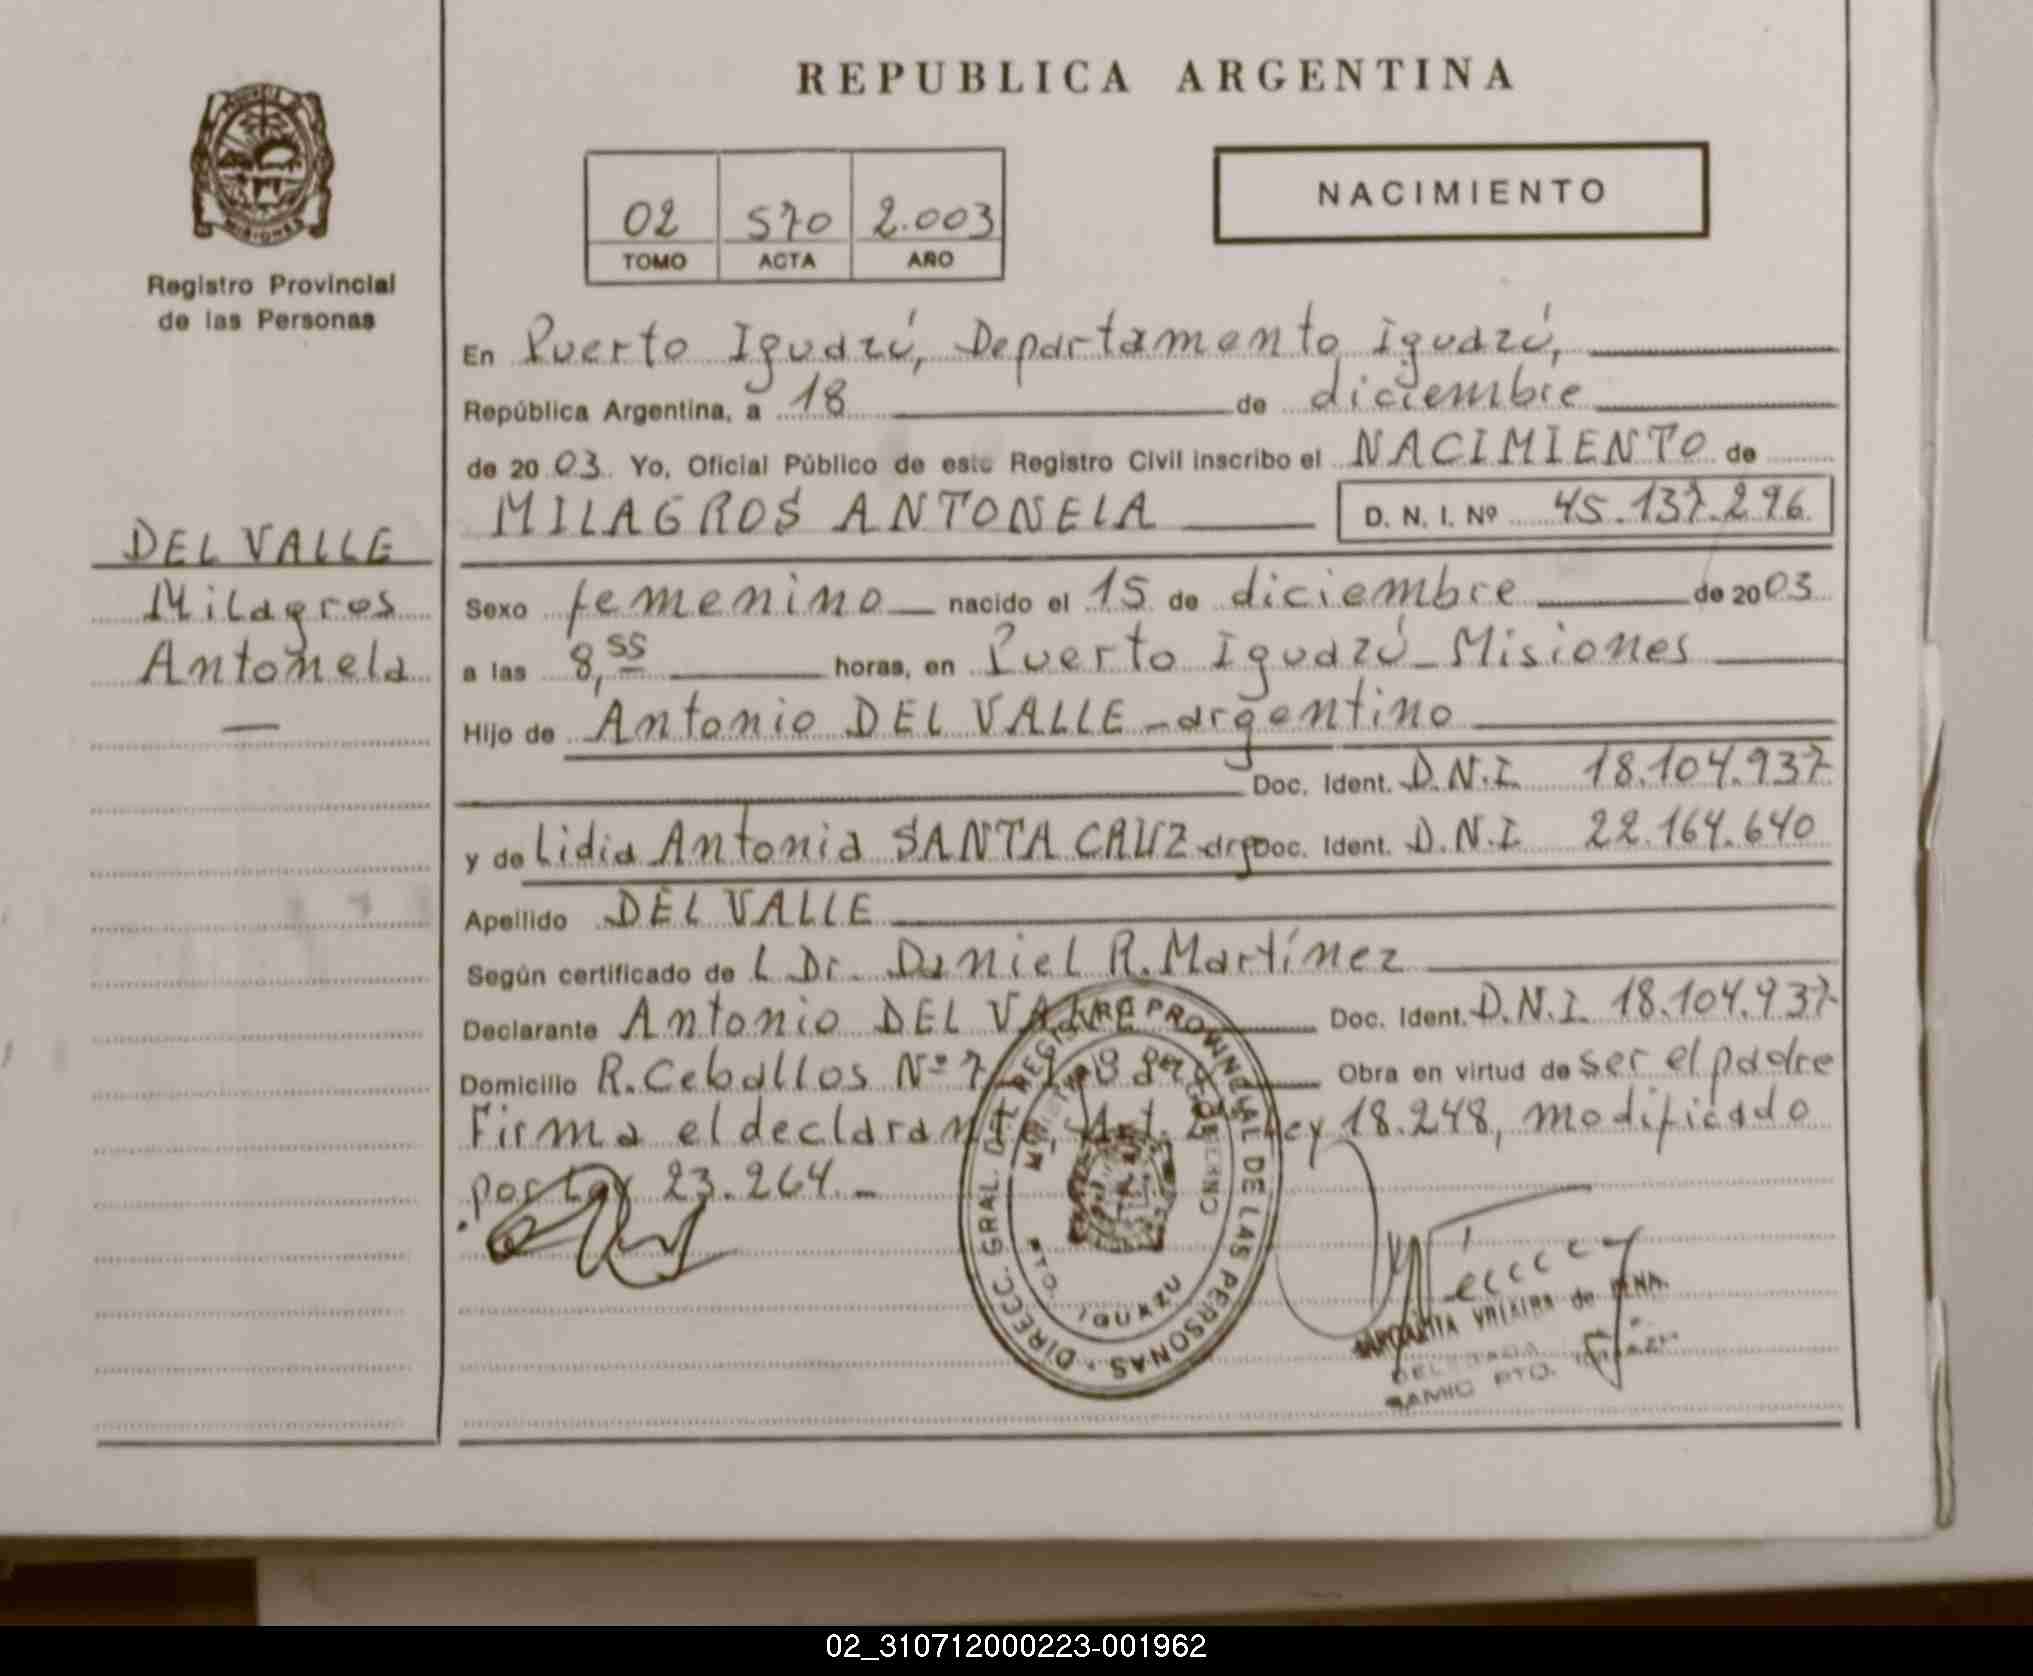 REPUBLICA ARGENTINA
02 570 2.003
TOMO ACTA AÑO
NACIMIENTO
Registro Provincial
de las Personas
DEL VALLE
Milagros
Antonela
En Puerto Iguazú, Departamento Iguazú,
República Argentina, a 18 de diciembre
de 20 03 Yo, Oficial Público de este Registro Civil inscribo el NACIMIENTO de
MILAGROS ANTONELA D. N. I. Nº 45.137.296
Sexo femenino nacido el 15 de diciembre de 20 03
a las 8,55 horas, en Puerto Iguazú - Misiones
Hijo de Antonio DEL VALLE - argentino
Doc. Ident. D.N.I. 18.104.937
y de Lidia Antonia SANTA CRUZ - arg Doc. Ident. D.N.I 22.164.640
Apellido DEL VALLE
Según certificado de l Dr. Daniel R. Martínez
Declarante Antonio DEL VALLE Doc. Ident. D.N.I. 18.104.937
Domicilio R. Ceballos Nº 7 Obra en virtud de ser el padre
Firma el declarante Ley 18.248, modificado
por Ley 23.264. -
DIRECC. GRAL. DEL REGISTRO PROVINCIAL DE LAS PERSONAS
PTO. IGUAZU
de PENA
PTO.
02_310712000223-001962